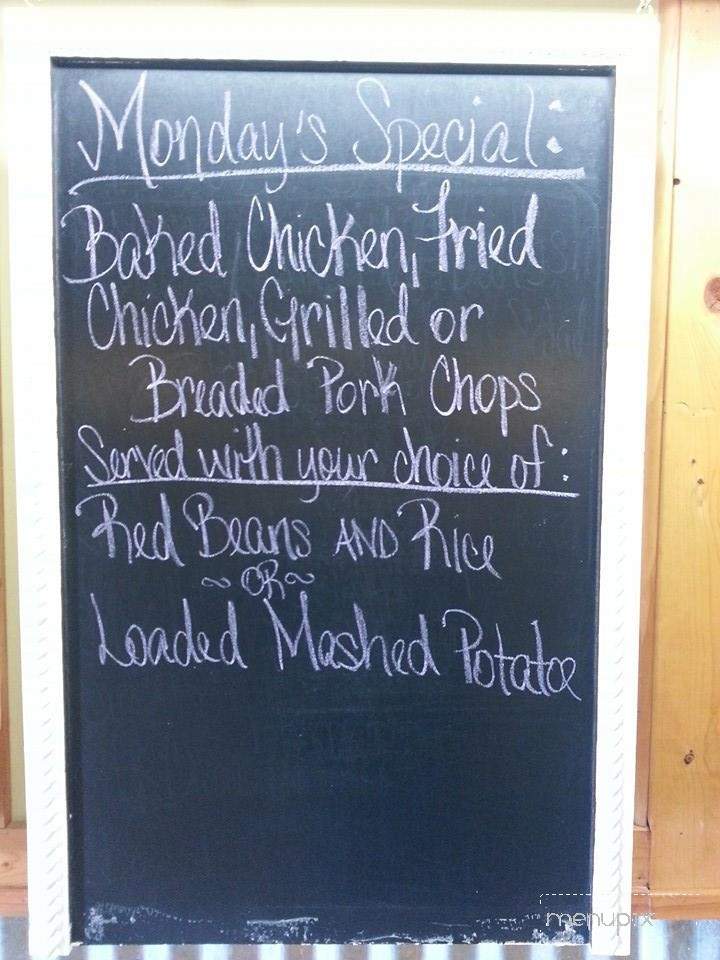 Monday's Special:
Baked Chicken, Fried
Chicken, Grilled or
Breaded Pork Chops
Served with your choice of:
Red Beans AND Rice
~OR~
Loaded Mashed Potatoe
menupix